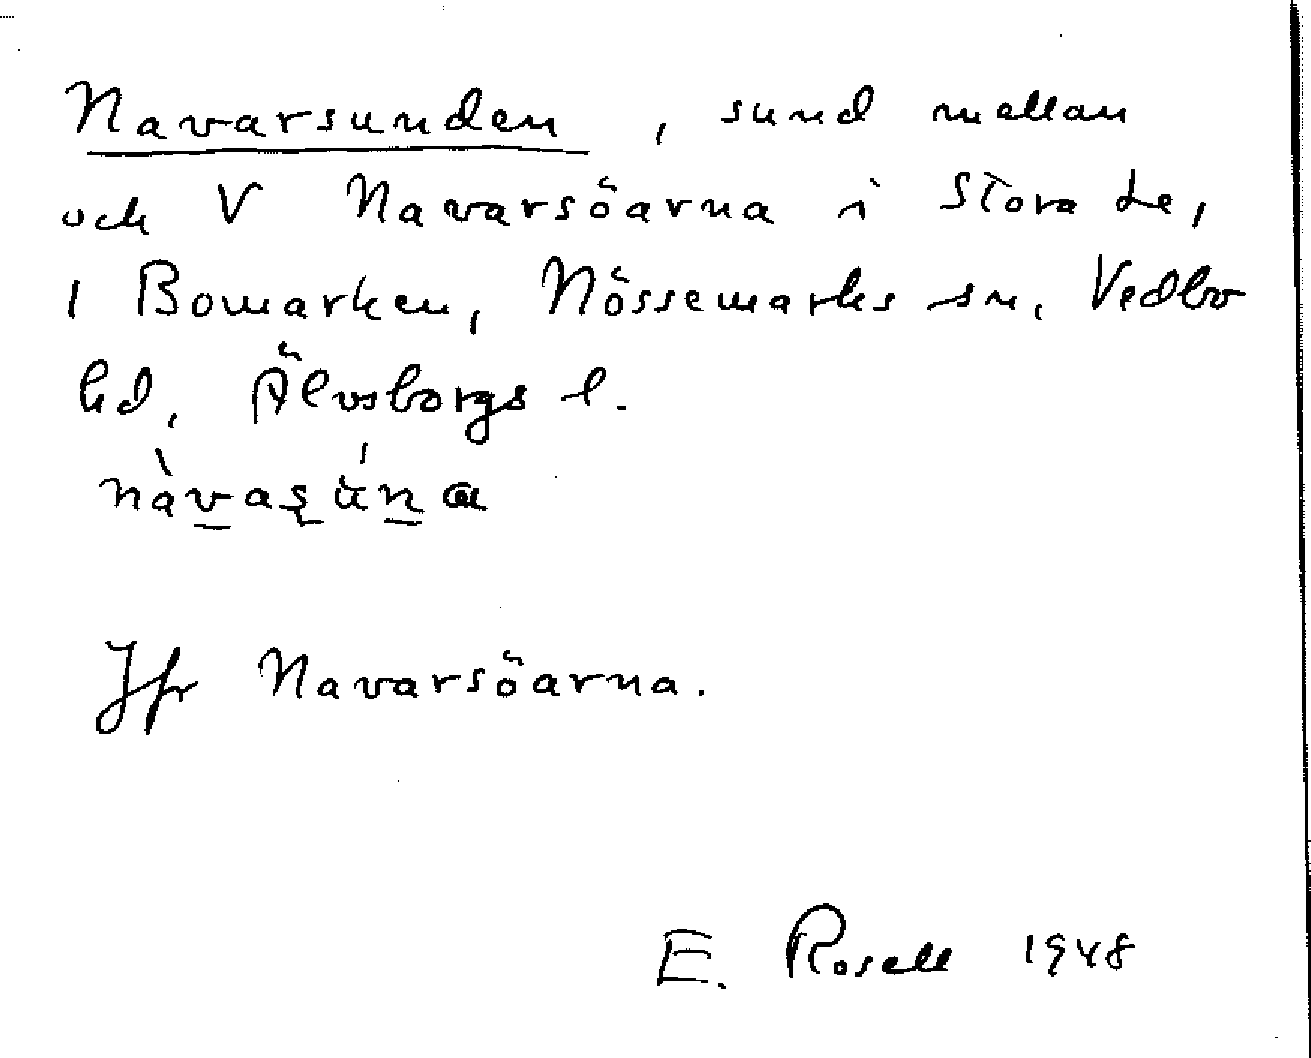 Navarsunden, sund mellan
och V Navarsöarna i Stora Le,
i Bomarken, Nössemarks sn, Vedbo
hd, Älvsborgs l.
Jfr Navarsöarna.
E. Rosell 1948